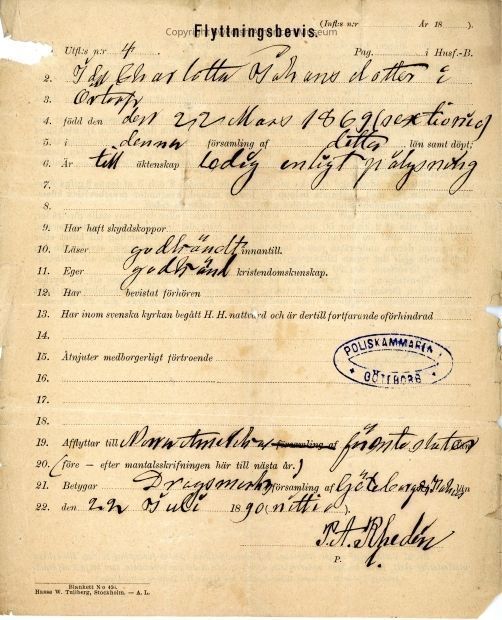 (Infl:s n:r År 18 ).
Copyright Museum
Flyttningsbevis.
1. Utfl:s n:r 4. Pag. i Husf.-B.
2. Ida Charlotta Johansdotter i
3.
4. född den den 22 Mars 1869 (sextionio)
5. i denna församling af detta län samt döpt;
6. Är till äktenskap ledig enligt pålysning
7.
8.
9. Har haft skyddskoppor
10. Läser godkändt innantill.
11. Eger godkänd kristendomskunskap.
12. Har bevistat förhören
13. Har inom svenska kyrkan begått H. H. nattvard och är dertill fortfarande oförhindrad
14.
15. Åtnjuter medborgerligt förtroende
POLISKAMMAREN I
GÖTEBORG
16.
17.
18.
19. Afflyttar till Norra Amerikas församling af förenta stater
20. (före — efter mantalsskrifningen här till nästa år.)
21. Betygar Dragsmarks församling af Göteborgs län
22. den 22 Juli 1890 (nittio).
P. A. Rhedén
P.
Blankett N:o 430.
Hasse W. Tullberg, Stockholm. — A. L.